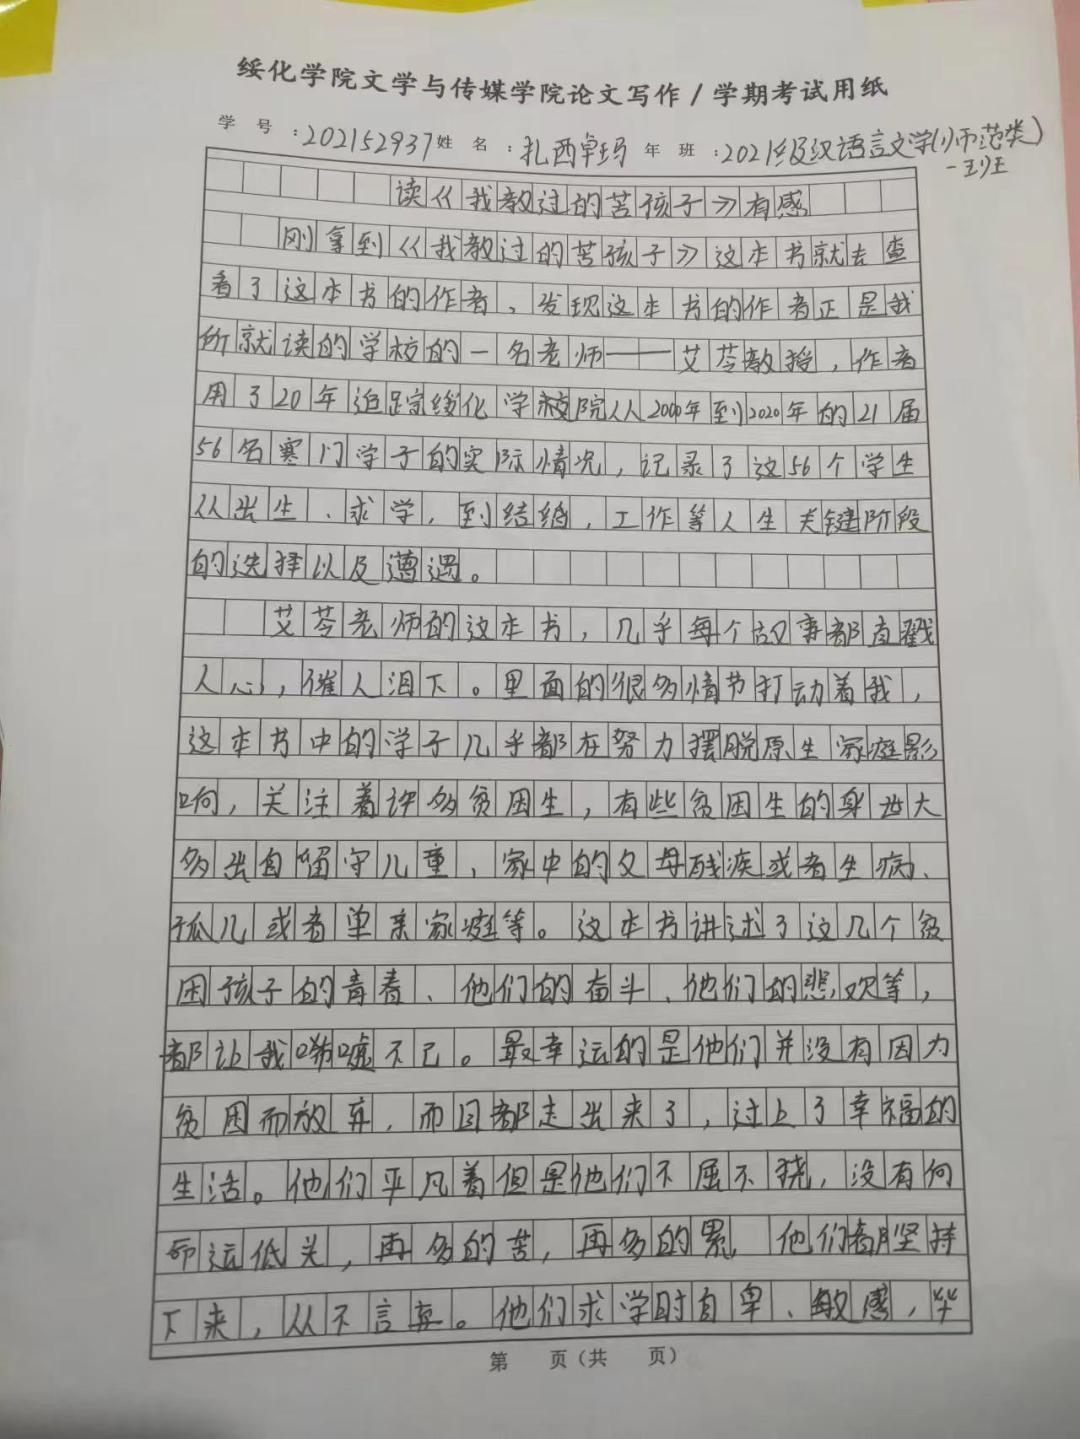 绥化学院文学与传媒学院论文写作/学期考试用纸
学 号:202152937姓 名:扎西卓玛 年 班:2021级汉语言文学(师范类)
一班
读《我教过的苦孩子》有感
刚拿到《我教过的苦孩子》这本书就去查
看了这本书的作者,发现这本书的作者正是我
所就读的学校的一名老师——艾苓教授,作者
用了20年追踪绥化学院从2000年到2020年的21届
56名寒门学子的实际情况,记录了这56个学生
从出生、求学,到结婚,工作等人生关键阶段
的选择以及遭遇。
艾苓老师的这本书,几乎每个故事都直戳
人心,催人泪下。里面的很多情节打动着我,
这本书中的学子几乎都在努力摆脱原生家庭影
响,关注着许多贫困生,有些贫困生的身世大
多出自留守儿童,家中的父母残疾或者生病、
孤儿或者单亲家庭等。这本书讲述了这几个贫
困孩子的青春、他们的奋斗、他们的悲欢等,
都让我唏嘘不已。最幸运的是他们并没有因为
贫困而放弃,而且都走出来了,过上了幸福的
生活。他们平凡着但是他们不屈不挠,没有向
命运低头,再多的苦,再多的累 他们都坚持
下来,从不言弃。他们求学时自卑、敏感,毕
第 页(共 页)